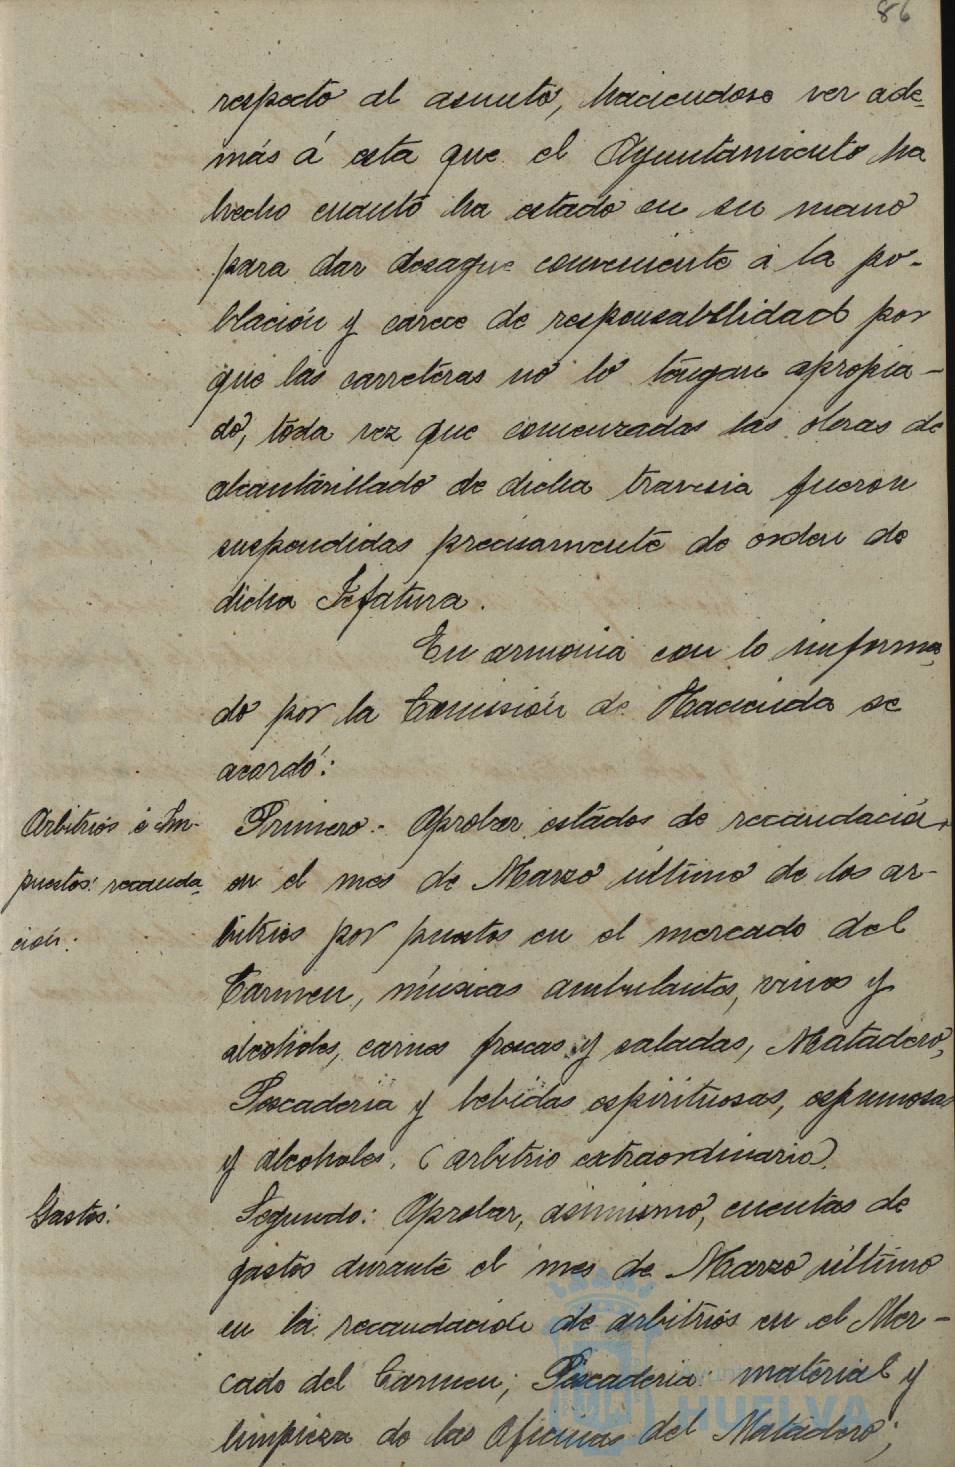 86
respecto al asunto, haciendose ver ade-
más á esta que el Ayuntamiento ha
hecho cuanto ha estado en su mano
para dar desague conveniente a la po-
blación y carece de responsabilidad por
que las carreteras no lo tengan apropia-
do, toda vez que comenzadas las obras de
alcantarillado de dicha travesia fueron
suspendidas precisamente de orden de
dicha Jefatura.
En armonia con lo informa-
do por la Comisión de Hacienda se
acordó:
Arbitrios é Im-
puestos: recauda-
ción:
Primero.- Aprobar estados de recaudación
en el mes de Marzo último de los ar-
bitrios por puestos en el mercado del
Carmen, músicas ambulantes, vinos y
alcoholes, carnes frescas y saladas, Matadero,
Pescaderia y bebidas espirituosas, espumosas
y alcoholes. (arbitrio extraordinario).
Gastos:
Segundo: Aprobar, asimismo, cuentas de
gastos durante el mes de Marzo último
en la recaudación de arbitrios en el Mer-
cado del Carmen; Pescaderia: material y
limpieza de las Oficinas del Matadero;
HUELVA